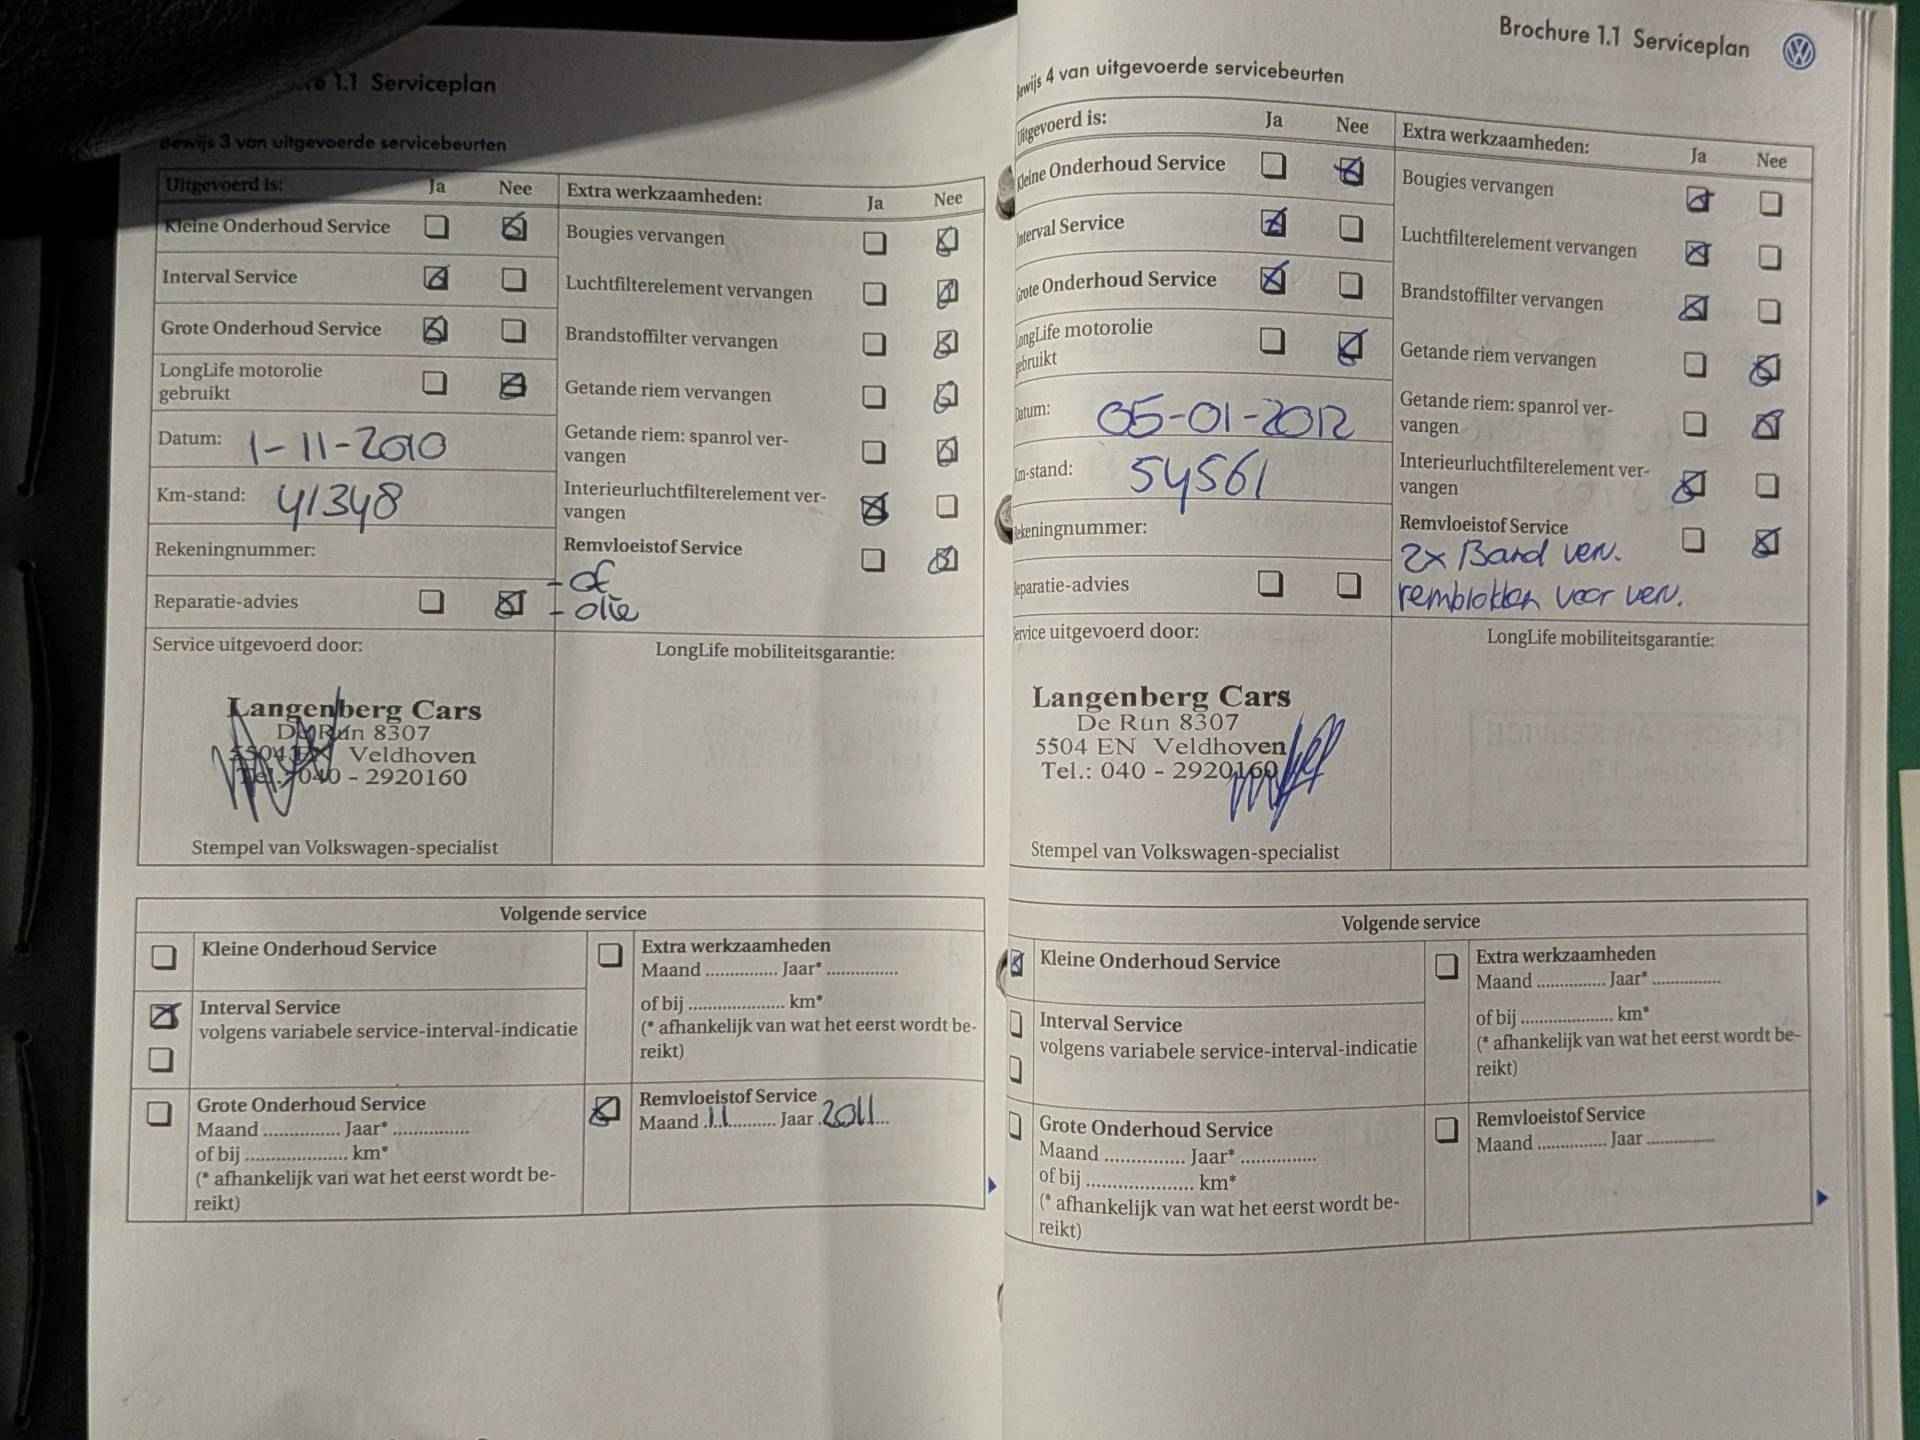 1.1 Serviceplan
Bewijs 3 van uitgevoerde servicebeurten
Uitgevoerd is: Ja Nee
Kleine Onderhoud Service
Interval Service
Grote Onderhoud Service
LongLife motorolie
gebruikt
Datum: 1-11-2010
Km-stand: 41348
Rekeningnummer:
Reparatie-advies
Extra werkzaamheden: Ja Nee
Bougies vervangen
Luchtfilterelement vervangen
Brandstoffilter vervangen
Getande riem vervangen
Getande riem: spanrol ver-
vangen
Interieurluchtfilterelement ver-
vangen
Remvloeistof Service
- of
- olie
Service uitgevoerd door:
Langenberg Cars
De Run 8307
5504 EN Veldhoven
Tel.: 040 - 2920160
Stempel van Volkswagen-specialist
LongLife mobiliteitsgarantie:
Volgende service
Kleine Onderhoud Service
Interval Service
volgens variabele service-interval-indicatie
Grote Onderhoud Service
Maand ............... Jaar* ...............
of bij .................... km*
(* afhankelijk van wat het eerst wordt be-
reikt)
Extra werkzaamheden
Maand .............. Jaar* ..............
of bij ................... km*
(* afhankelijk van wat het eerst wordt be-
reikt)
Remvloeistof Service
Maand .11.......... Jaar .2011...
Brochure 1.1 Serviceplan
Bewijs 4 van uitgevoerde servicebeurten
Uitgevoerd is: Ja Nee
Kleine Onderhoud Service
Interval Service
Grote Onderhoud Service
LongLife motorolie
gebruikt
Datum: 05-01-2012
Km-stand: 54561
Rekeningnummer:
Reparatie-advies
Extra werkzaamheden: Ja Nee
Bougies vervangen
Luchtfilterelement vervangen
Brandstoffilter vervangen
Getande riem vervangen
Getande riem: spanrol ver-
vangen
Interieurluchtfilterelement ver-
vangen
Remvloeistof Service
2x Band verv.
remblokken voor verv.
Service uitgevoerd door:
Langenberg Cars
De Run 8307
5504 EN Veldhoven
Tel.: 040 - 2920160
Stempel van Volkswagen-specialist
LongLife mobiliteitsgarantie:
Volgende service
Kleine Onderhoud Service
Interval Service
volgens variabele service-interval-indicatie
Grote Onderhoud Service
Maand ............... Jaar* ..............
of bij ..................... km*
(* afhankelijk van wat het eerst wordt be-
reikt)
Extra werkzaamheden
Maand ............. Jaar* .............
of bij ................... km*
(* afhankelijk van wat het eerst wordt be-
reikt)
Remvloeistof Service
Maand ............. Jaar .............